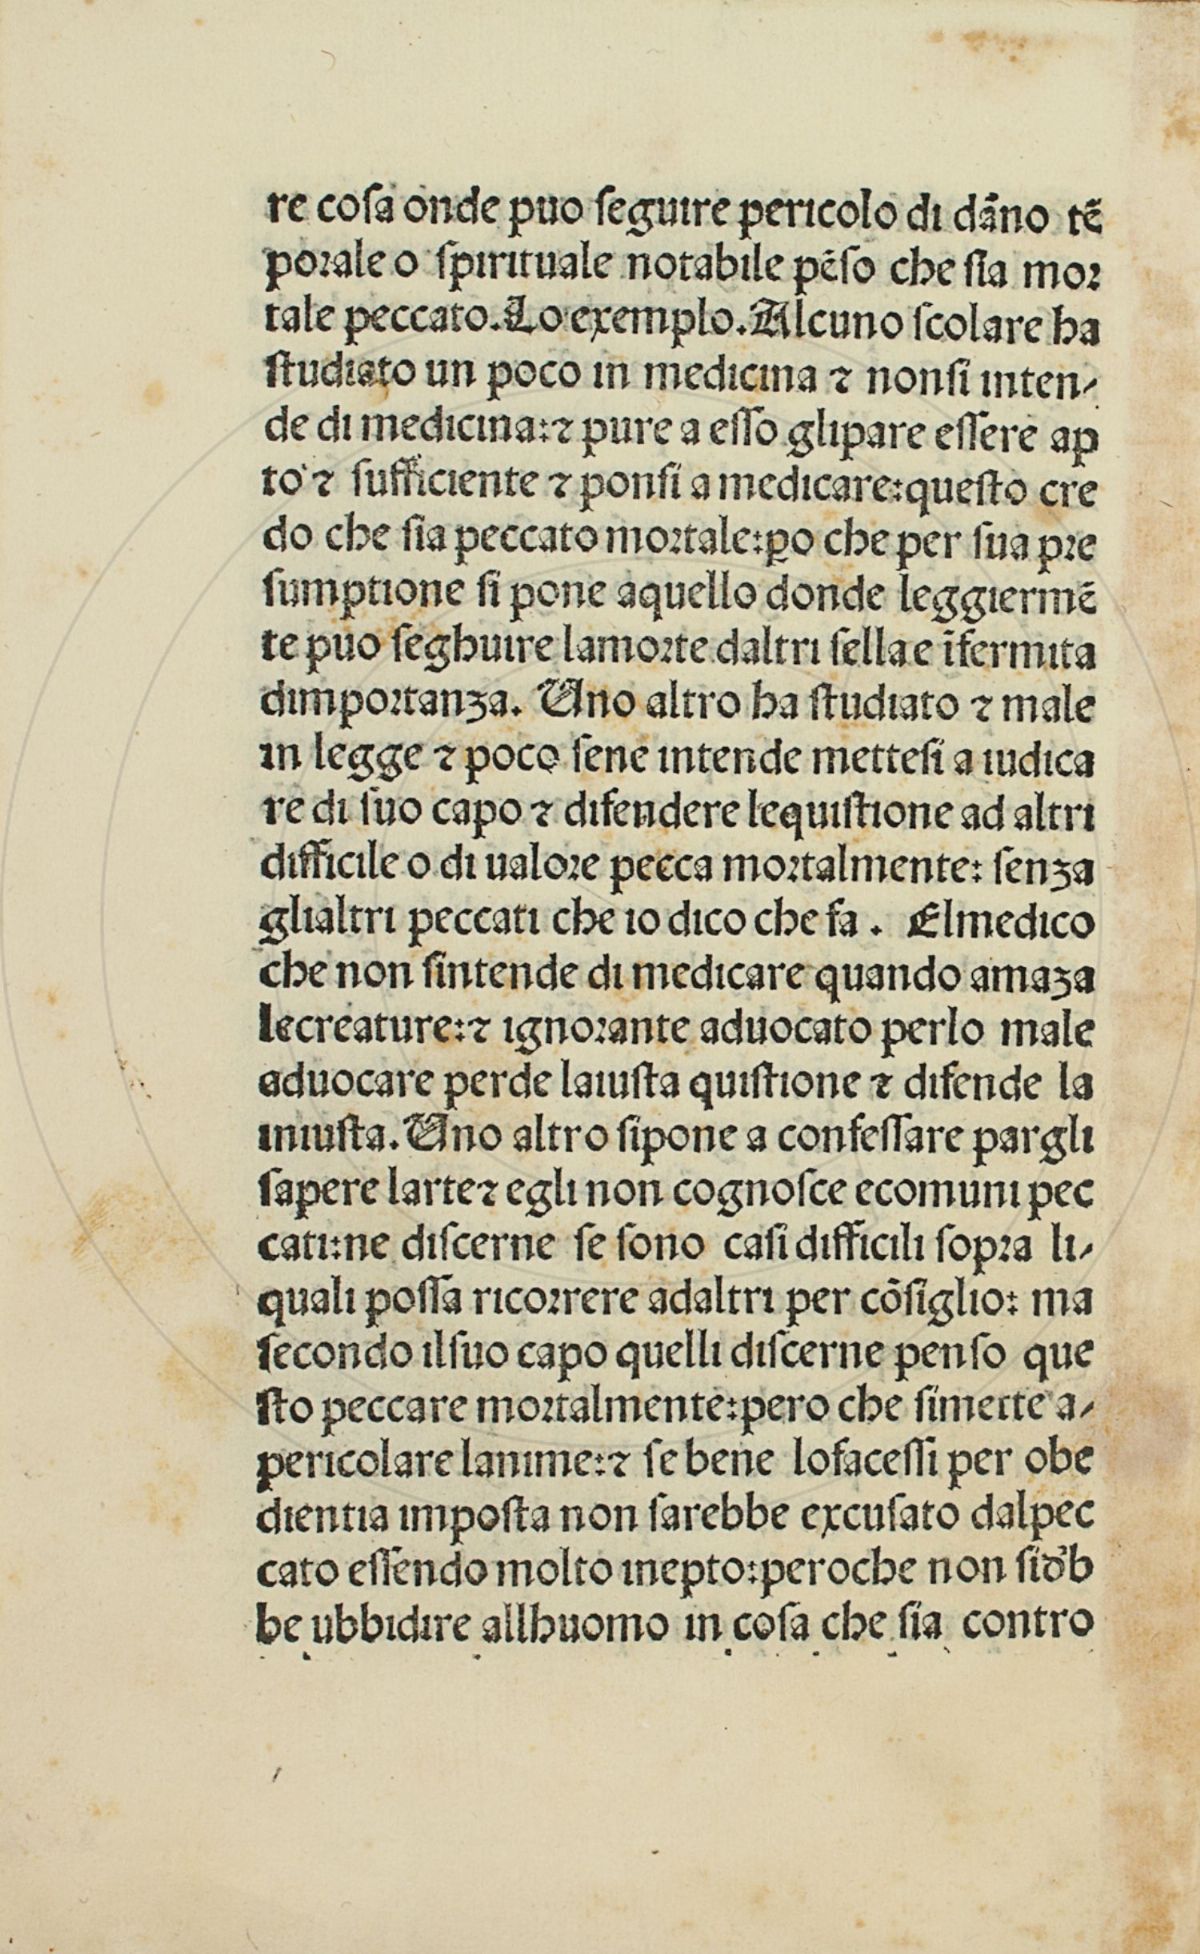 re coſa onde puo ſeguire pericolo di dāno tē
porale o ſpirituale notabile pēſo che ſia mor
tale peccato. Lo exemplo. Alcuno ſcolare ha
ſtudiato un poco in medicina ⁊ nonſi inten-
de di medicina: ⁊ pure a eſſo glipare eſſere ap
to ⁊ ſufficiente ⁊ ponſi a medicare: queſto cre
do che ſia peccato mortale: ꝑo che per ſua pre
ſumptione ſi pone aquello donde leggiermē
te puo ſeghuire lamorte daltri ſella e īfermita
dimportanza. Uno altro ha ſtudiato ⁊ male
in legge ⁊ poco ſene intende metteſi a iudica
re di ſuo capo ⁊ difendere lequiſtione ad altri
difficile o di ualore pecca mortalmente: ſenza
glialtri peccati che io dico che fa. Elmedico
che non ſintende di medicare quando amaza
lecreature: ⁊ ignorante aduocato perlo male
aduocare perde laiuſta quiſtione ⁊ difende la
iniuſta. Uno altro ſipone a confeſſare pargli
ſapere larte ⁊ egli non cognoſce ecomuni pec
cati: ne diſcerne ſe ſono caſi difficili ſopra li-
quali poſſa ricorrere adaltri per cōſiglio: ma
ſecondo ilſuo capo quelli diſcerne penſo que
ſto peccare mortalmente: pero che ſimette a-
pericolare lanime: ⁊ ſe bene lofaceſſi per obe
dientia impoſta non ſarebbe excuſato dalpec
cato eſſendo molto inepto: peroche non ſid̄b
be ubbidire allhuomo in coſa che ſia contro